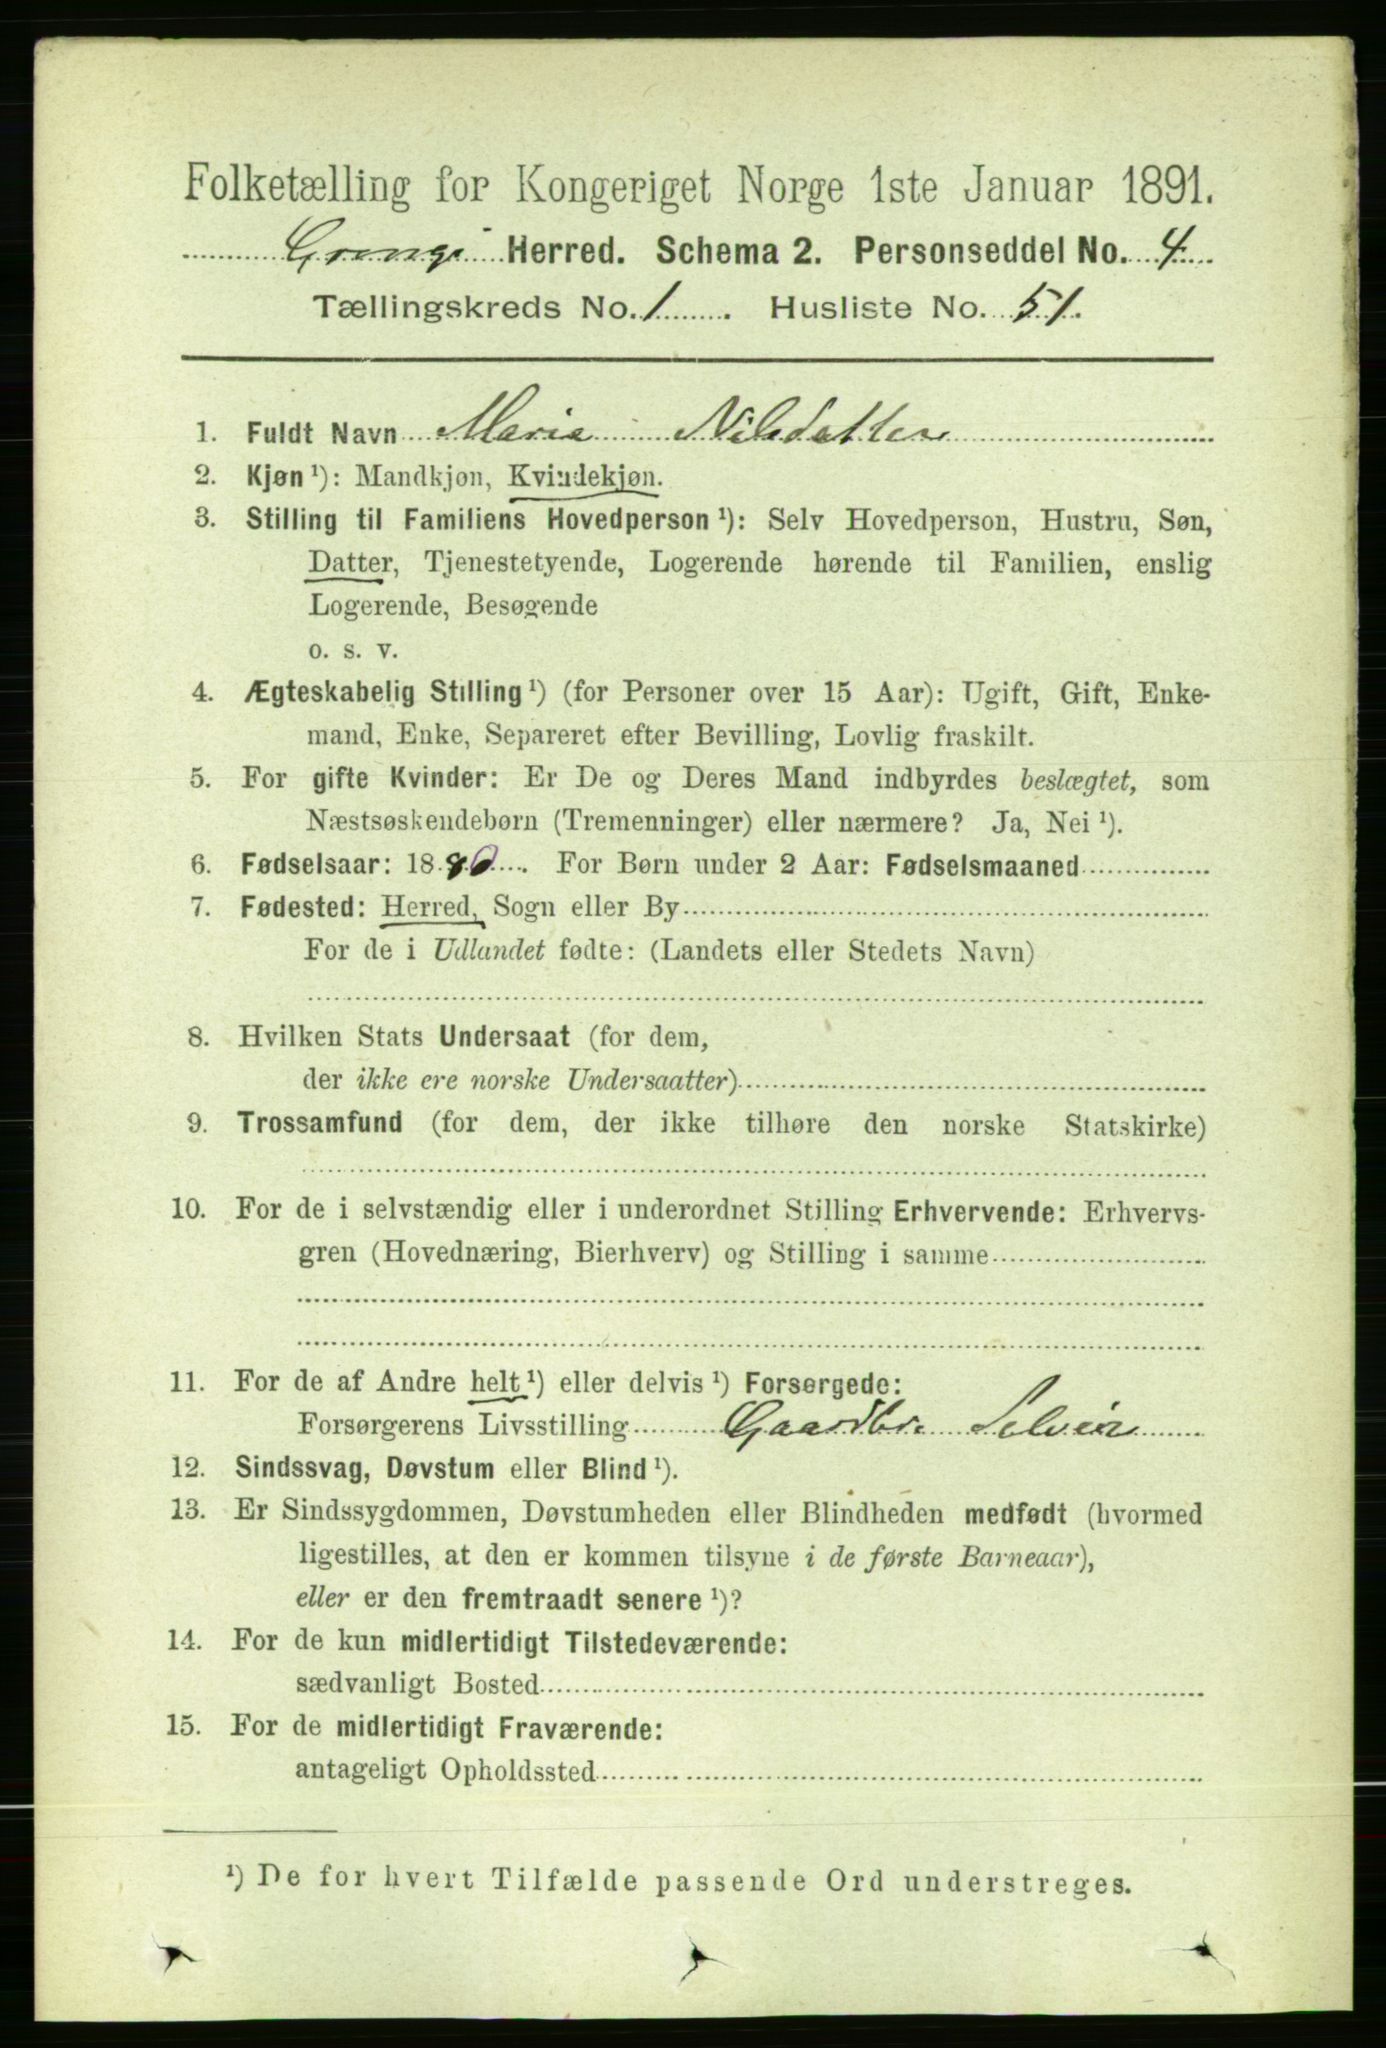 Folketælling for Kongeriget Norge 1ste Januar 1891.
Herred. Schema 2. Personseddel No. 4
Tællingskreds No. 1. Husliste No. 51.
1. Fuldt Navn Maria Nilsdatter
2. Kjøn ¹): Mandkjøn, Kvindekjøn.
3. Stilling til Familiens Hovedperson ¹): Selv Hovedperson, Hustru, Søn,
Datter, Tjenestetyende, Logerende hørende til Familien, enslig
Logerende, Besøgende
o. s. v.
4. Ægteskabelig Stilling ¹) (for Personer over 15 Aar): Ugift, Gift, Enke-
mand, Enke, Separeret efter Bevilling, Lovlig fraskilt.
5. For gifte Kvinder: Er De og Deres Mand indbyrdes beslægtet, som
Næstsøskendebørn (Tremenninger) eller nærmere? Ja, Nei ¹).
6. Fødselsaar: 1880. For Børn under 2 Aar: Fødselsmaaned
7. Fødested: Herred, Sogn eller By
For de i Udlandet fødte: (Landets eller Stedets Navn)
8. Hvilken Stats Undersaat (for dem,
der ikke ere norske Undersaatter)
9. Trossamfund (for dem, der ikke tilhøre den norske Statskirke)
10. For de i selvstændig eller i underordnet Stilling Erhvervende: Erhvervs-
gren (Hovednæring, Bierhverv) og Stilling i samme
11. For de af Andre helt ¹) eller delvis ¹) Forsørgede:
Forsørgerens Livsstilling Gaardbr. Selveier
12. Sindssvag, Døvstum eller Blind ¹).
13. Er Sindssygdommen, Døvstumheden eller Blindheden medfødt (hvormed
ligestilles, at den er kommen tilsyne i de første Barneaar),
eller er den fremtraadt senere ¹)?
14. For de kun midlertidigt Tilstedeværende:
sædvanligt Bosted
15. For de midlertidigt Fraværende:
antageligt Opholdssted
¹) De for hvert Tilfælde passende Ord understreges.